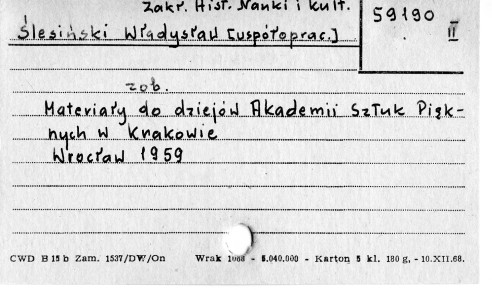 Zakł. Hist. Nauki i Kult.
59190
II
Ślesiński Władysław [współoprac.]
zob.
Materiały do dziejów Akademii Sztuk Pięk-
nych w Krakowie
Wrocław 1959
CWD B 15 b Zam. 1537/DW/On Wrak - 5.040.000 - Karton 5 kl. 180 g, - 10.XII.68.